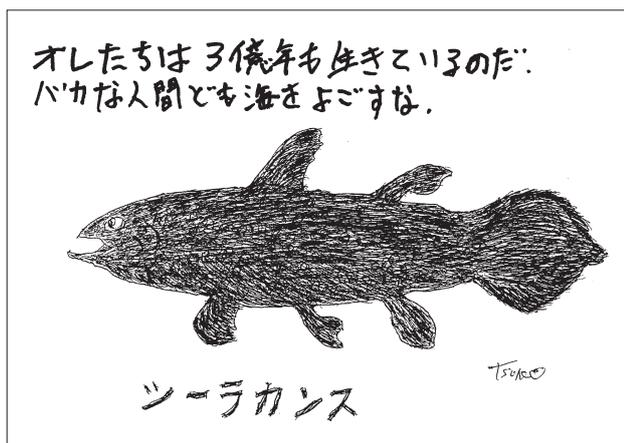 オレたちは3億年も生きているのだ.
バカな人間ども海をよごすな.
シーラカンス